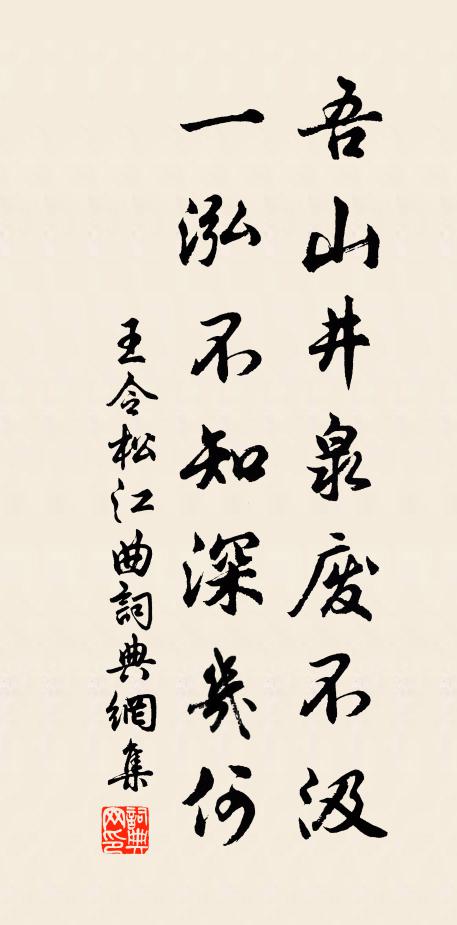 吾山井泉废不汲
一泓不知深幾何
王令松江曲詞典網集
詞典网印